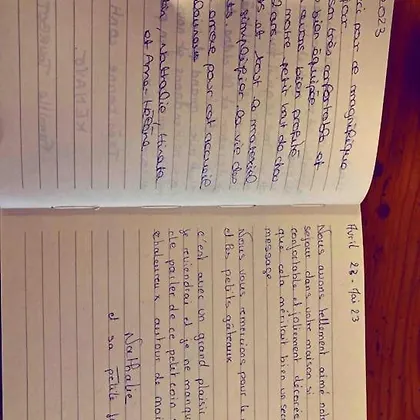 2023
ci pour ce magnifique
son très confortable et
bien équipée
avons bien profité
notre petit bout de chou
ans
s et tout le matériel
simplifier la vie des
ts
encore pour cet accueil
leureux
Nathalie
et
Avril 23 - Mai 23
Nous avons tellement aimé not
sejour dans votre maison si
confortable et joliement décorée
que cela méritait bien un se
message
Nous vous remercions pour le
et les petits gâteaux
c'est avec un grand plaisir
je reviendrai et je ne manqu
de parler de ce petit coin
chaleureux autour de moi
Nathalie
et sa petite f